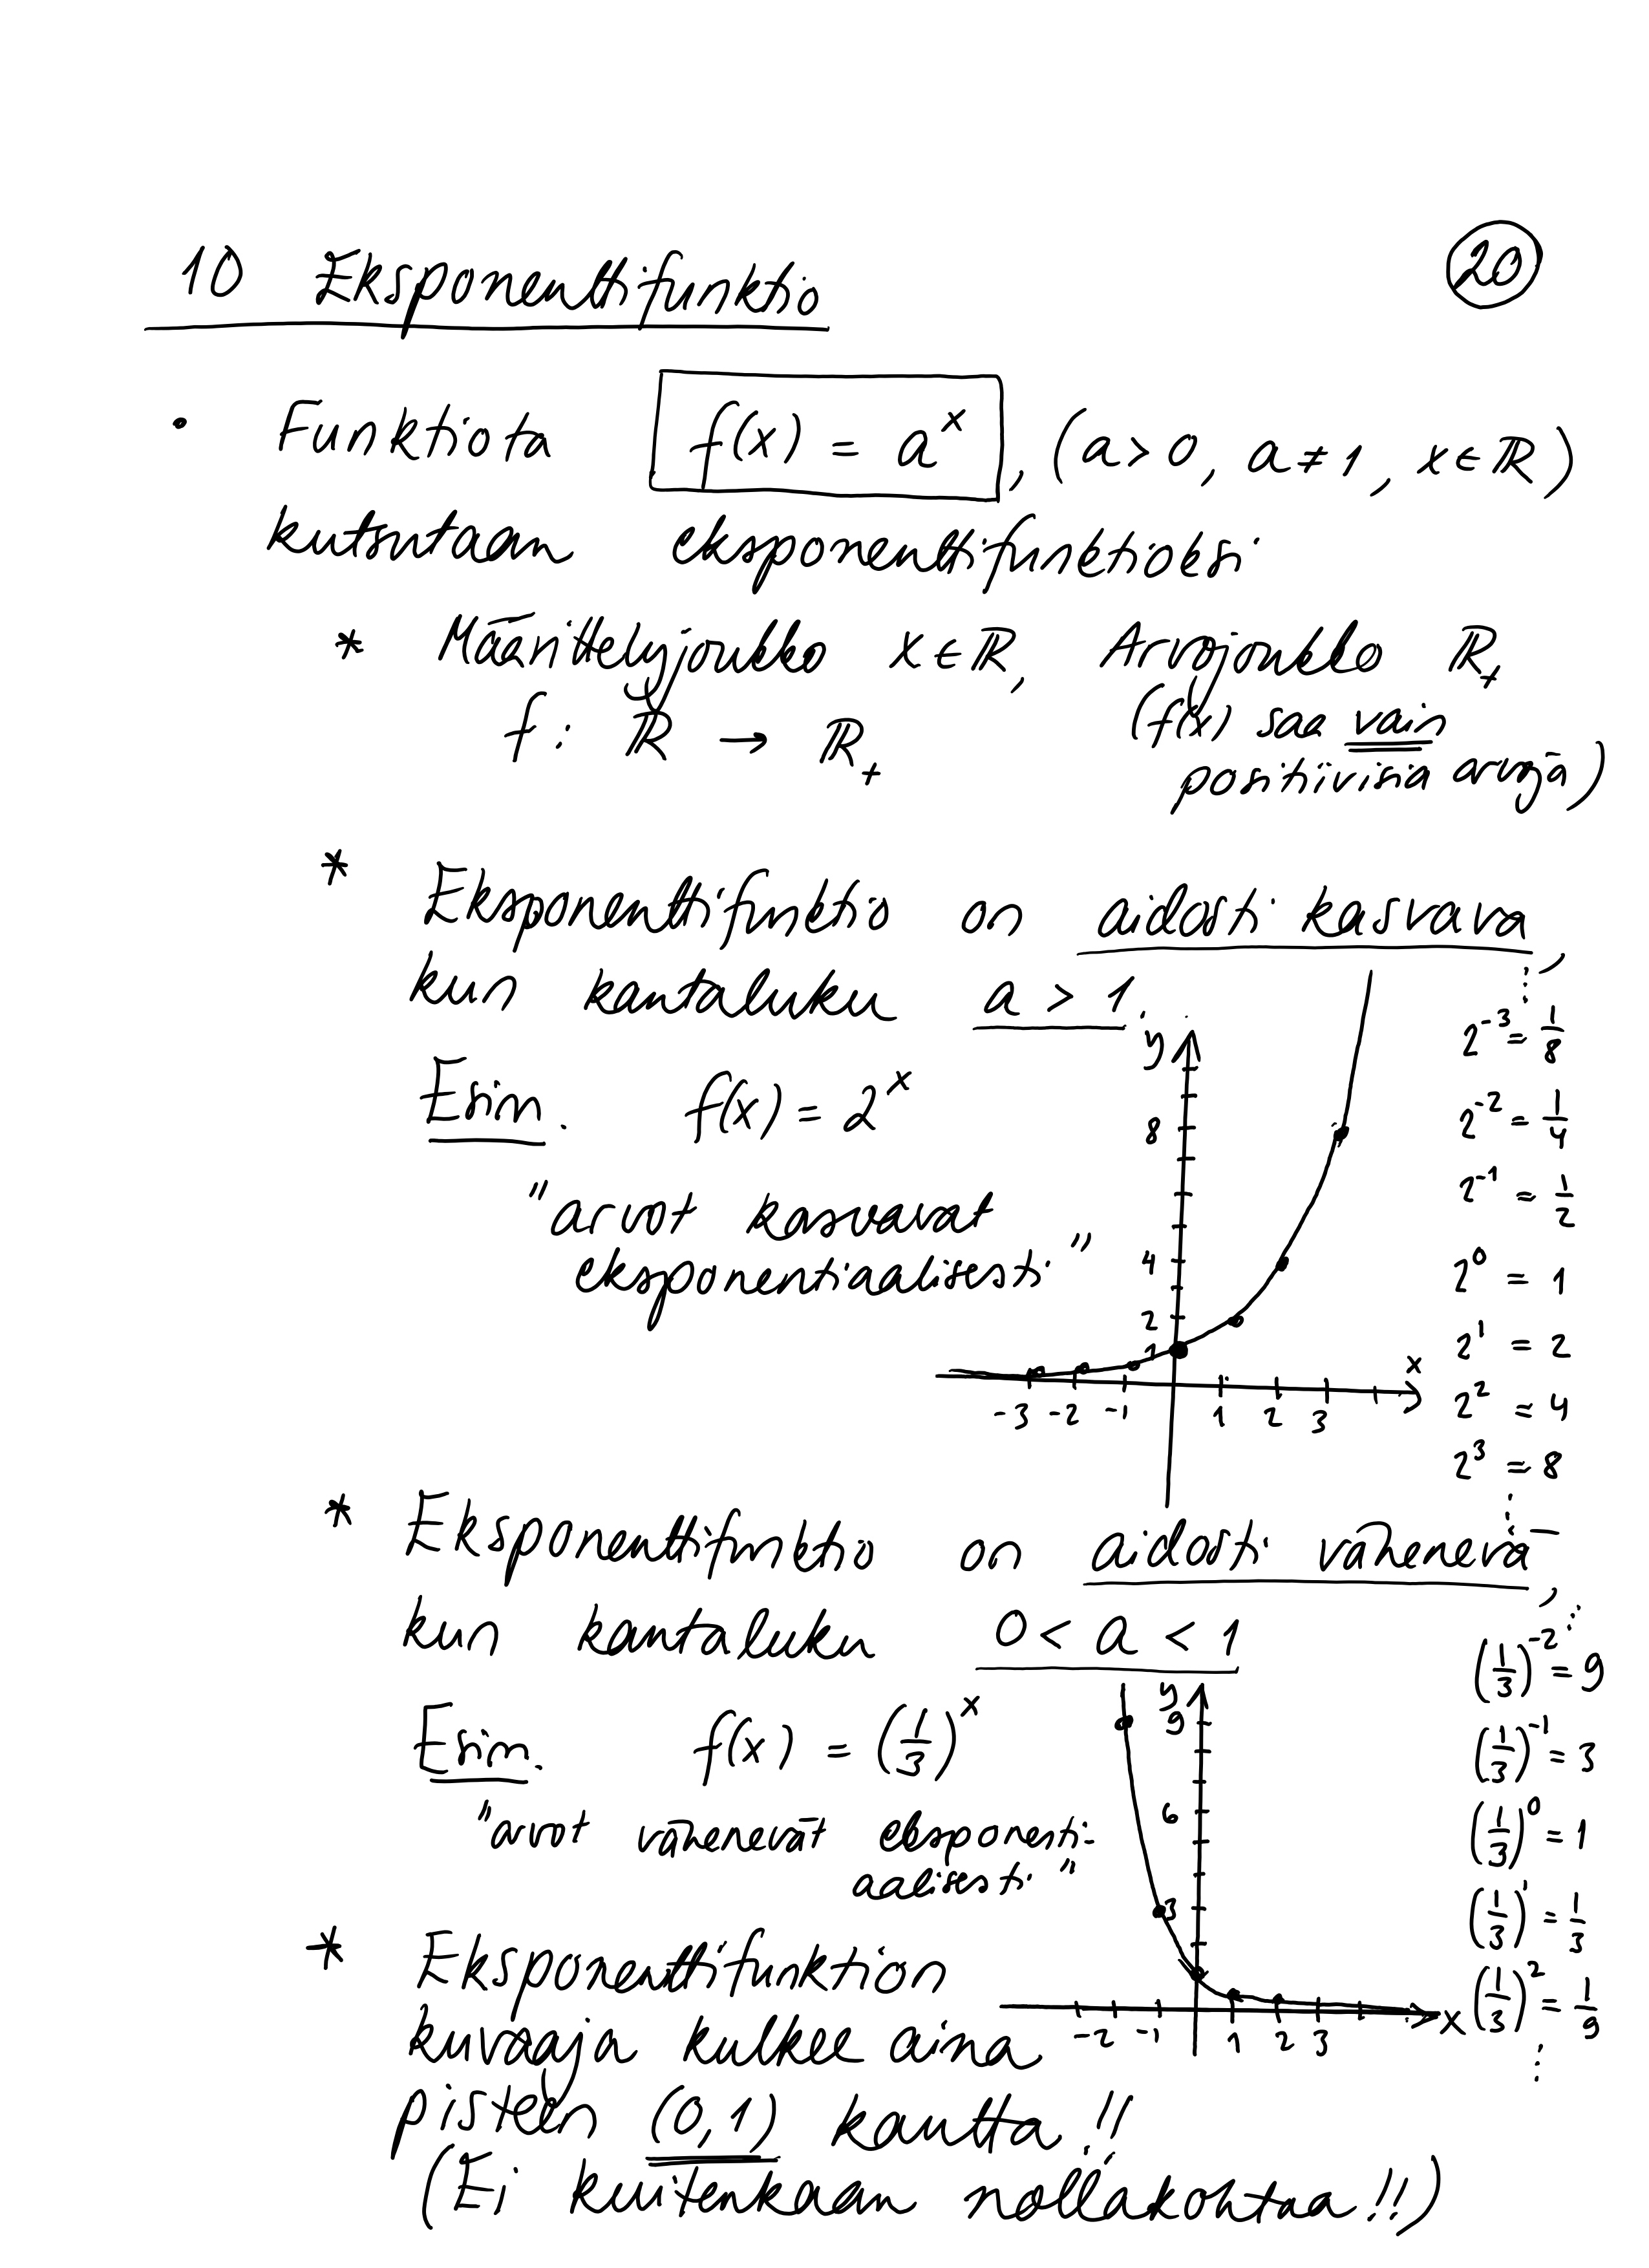 10 Eksponenttifunktio
20
• Funktiota f(x) = a^x, (a > 0, a ≠ 1, x ∈ ℝ)
kutsutaan eksponenttifunktioksi
* Määrittelyjoukko x ∈ ℝ, Arvojoukko ℝ₊
f: ℝ → ℝ₊
(f(x) saa vain
positiivisia arvoja)
* Eksponenttifunktio on aidosti kasvava,
kun kantaluku a > 1.
Esim. f(x) = 2^x
"arvot kasvavat
eksponentiaalisesti"
y
8
4
2
1
x
-3 -2 -1 1 2 3
⋮
2^-3 = 1/8
2^-2 = 1/4
2^-1 = 1/2
2^0 = 1
2^1 = 2
2^2 = 4
2^3 = 8
⋮
* Eksponenttifunktio on aidosti vähenevä,
kun kantaluku 0 < a < 1
Esim. f(x) = (1/3)^x
"arvot vähenevät eksponenti-
aalisesti"
y
9
6
3
x
-2 -1 1 2 3
⋮
(1/3)^-2 = 9
(1/3)^-1 = 3
(1/3)^0 = 1
(1/3)^1 = 1/3
(1/3)^2 = 1/9
⋮
* Eksponenttifunktion
kuvaaja kulkee aina
pisteen (0,1) kautta!!
(Ei kuitenkaan nollakohtaa!!)